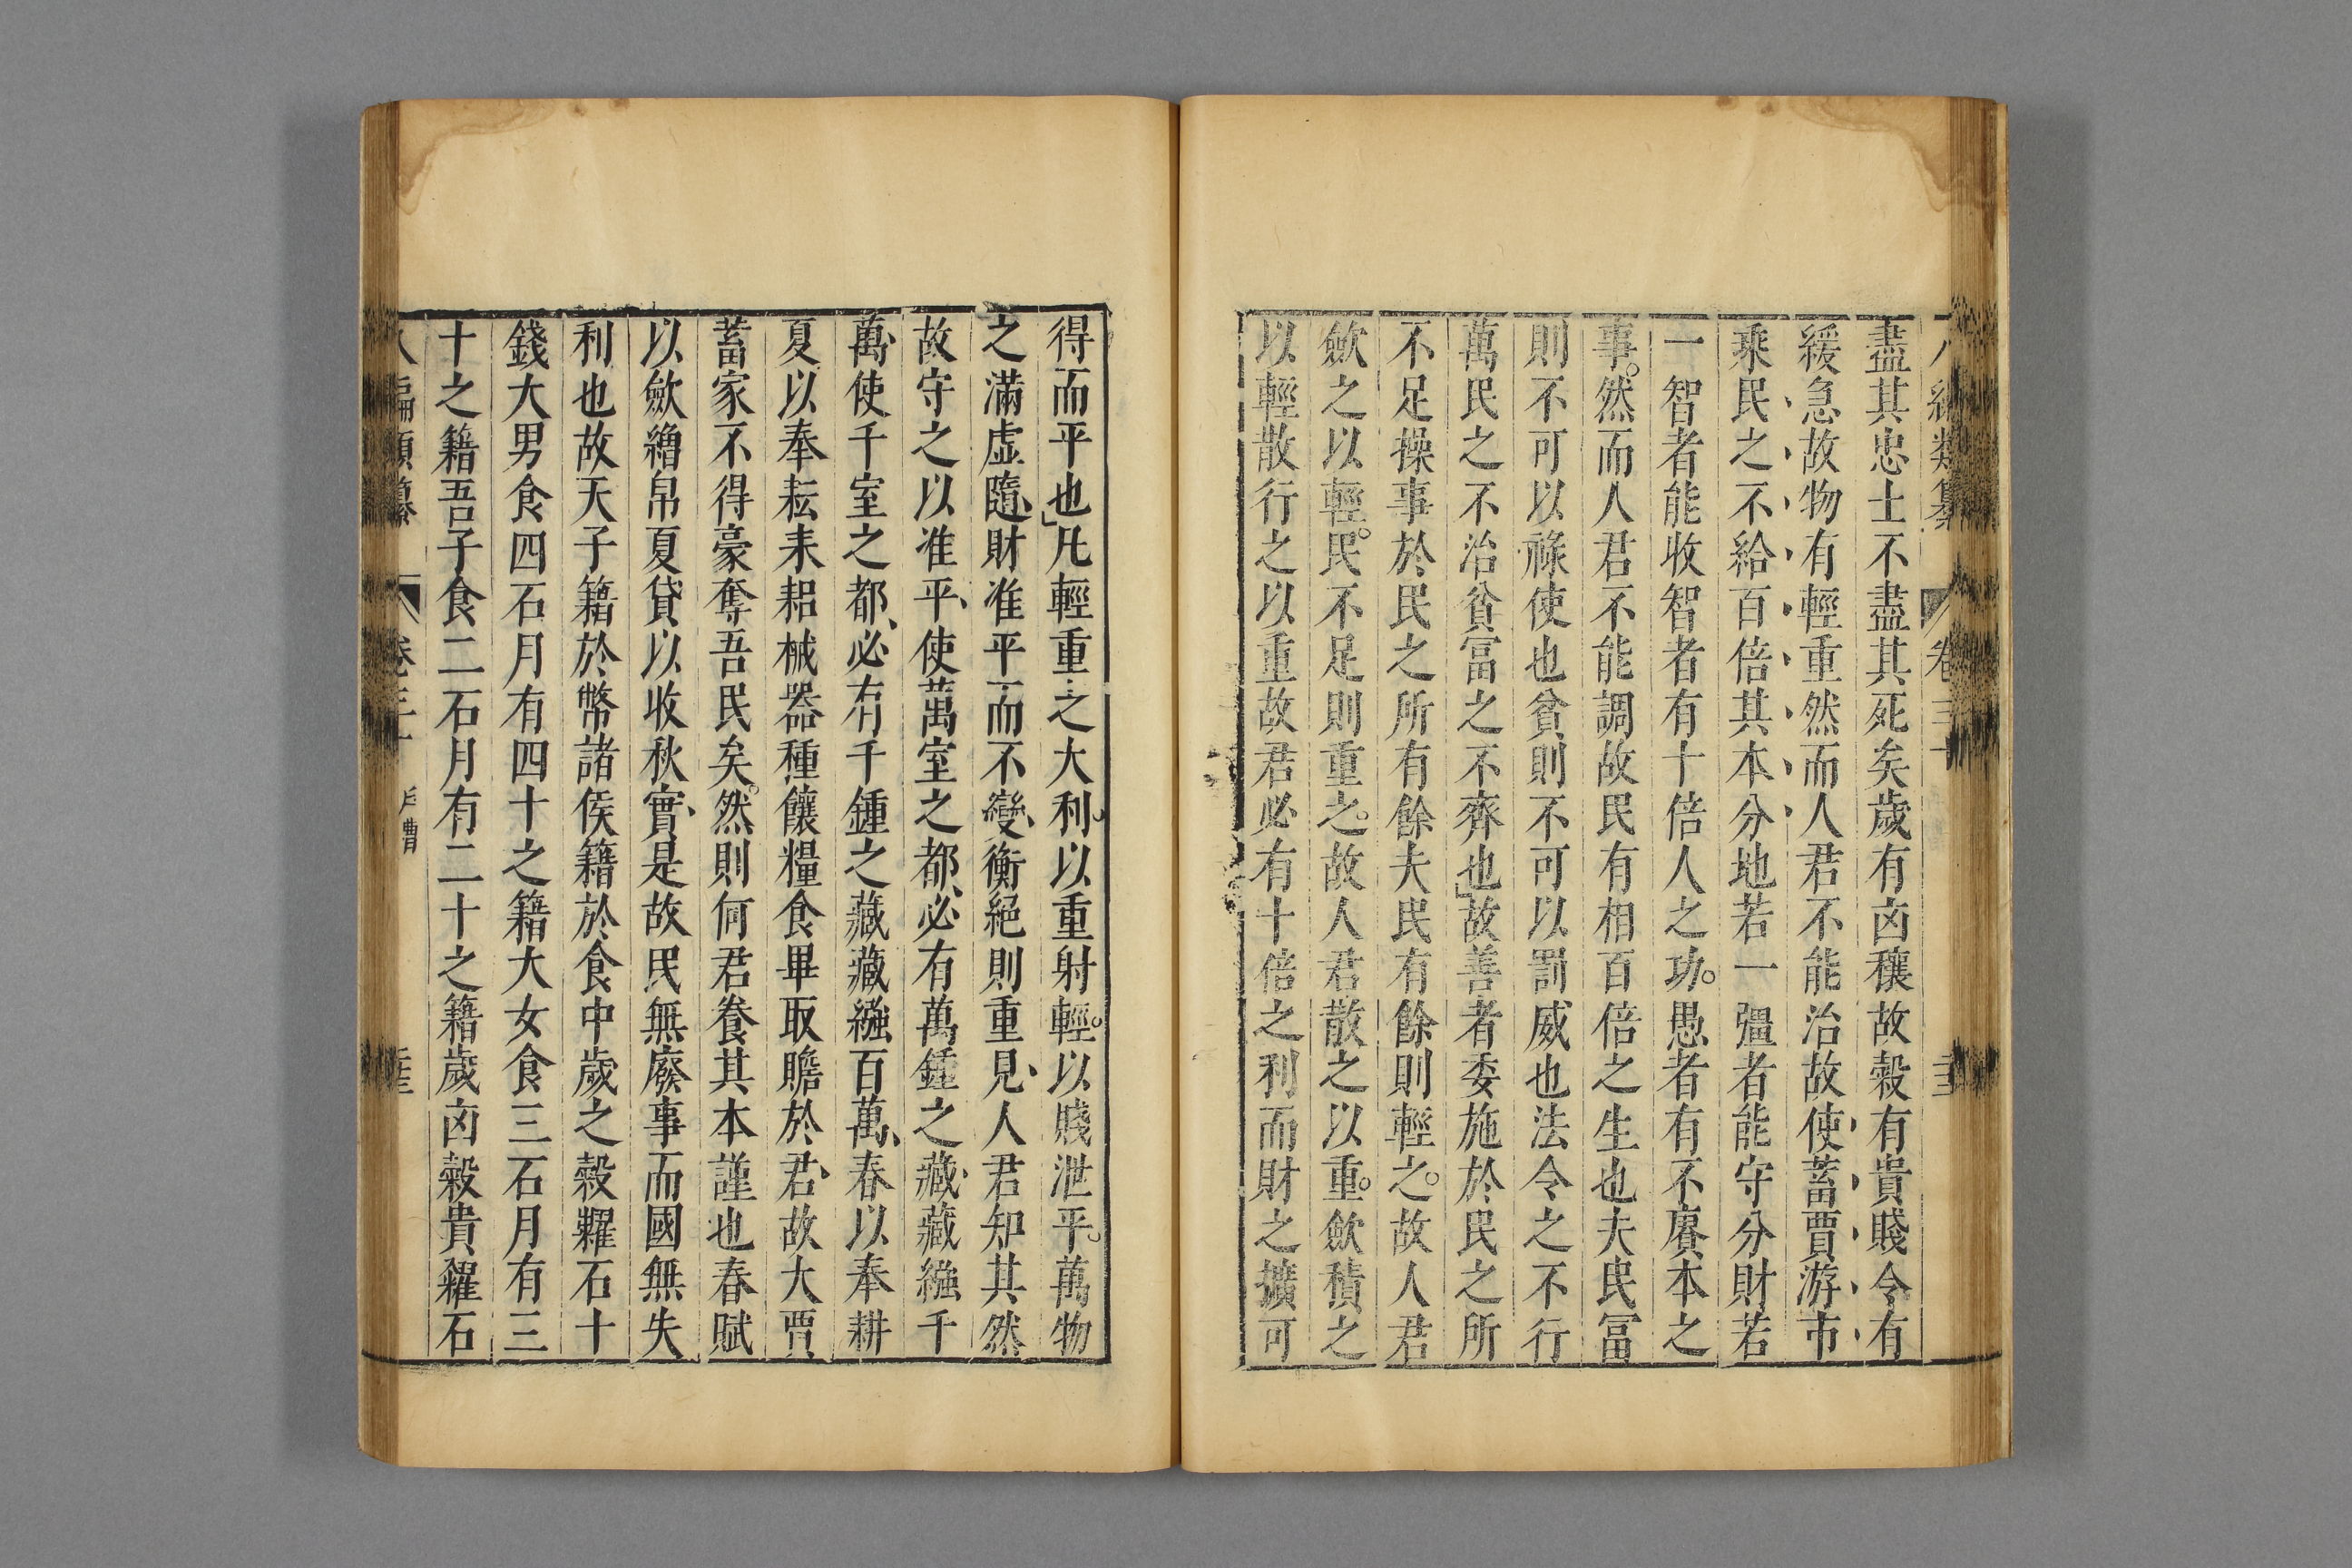 盡其忠士不盡其死矣歲有凶穰故穀有貴賤令有
緩急故物有輕重然而人君不能治故使蓄賈游市
乘民之不給百倍其本分地若一彊者能守分財若
一智者能收智者有十倍人之功。愚者有不賡本之
事。然而人君不能調故民有相百倍之生也夫民冨
則不可以祿使也貧則不可以罰威也法令之不行
萬民之不治貧冨之不齊也故善者委施於民之所
不足操事於民之所有餘夫民有餘則輕之。故人君
歛之以輕。民不足則重之。故人君散之以重。歛積之
以輕散行之以重故君必有十倍之利而財之擴可
得而平也凡輕重之大利以重射輕。以賤泄平。萬物
之滿虛隨財准平而不變衡絕則重見人君知其然
故守之以准平使萬室之都必有萬鍾之藏藏繈千
萬使千室之都必有千鍾之藏藏繈百萬春以奉耕
夏以奉耘耒耜械器種饟糧食畢取贍於君故大賈
蓄家不得豪奪吾民矣。然則何君養其本謹也春賦
以歛繒帛夏貸以收秋實是故民無廢事而國無失
利也故天子籍於幣諸侯籍於食中歲之穀糶石十
錢大男食四石月有四十之籍大女食三石月有三
十之籍吾子食二石月有二十之籍歲凶穀貴糴石
八編類纂 卷三十 戶曹